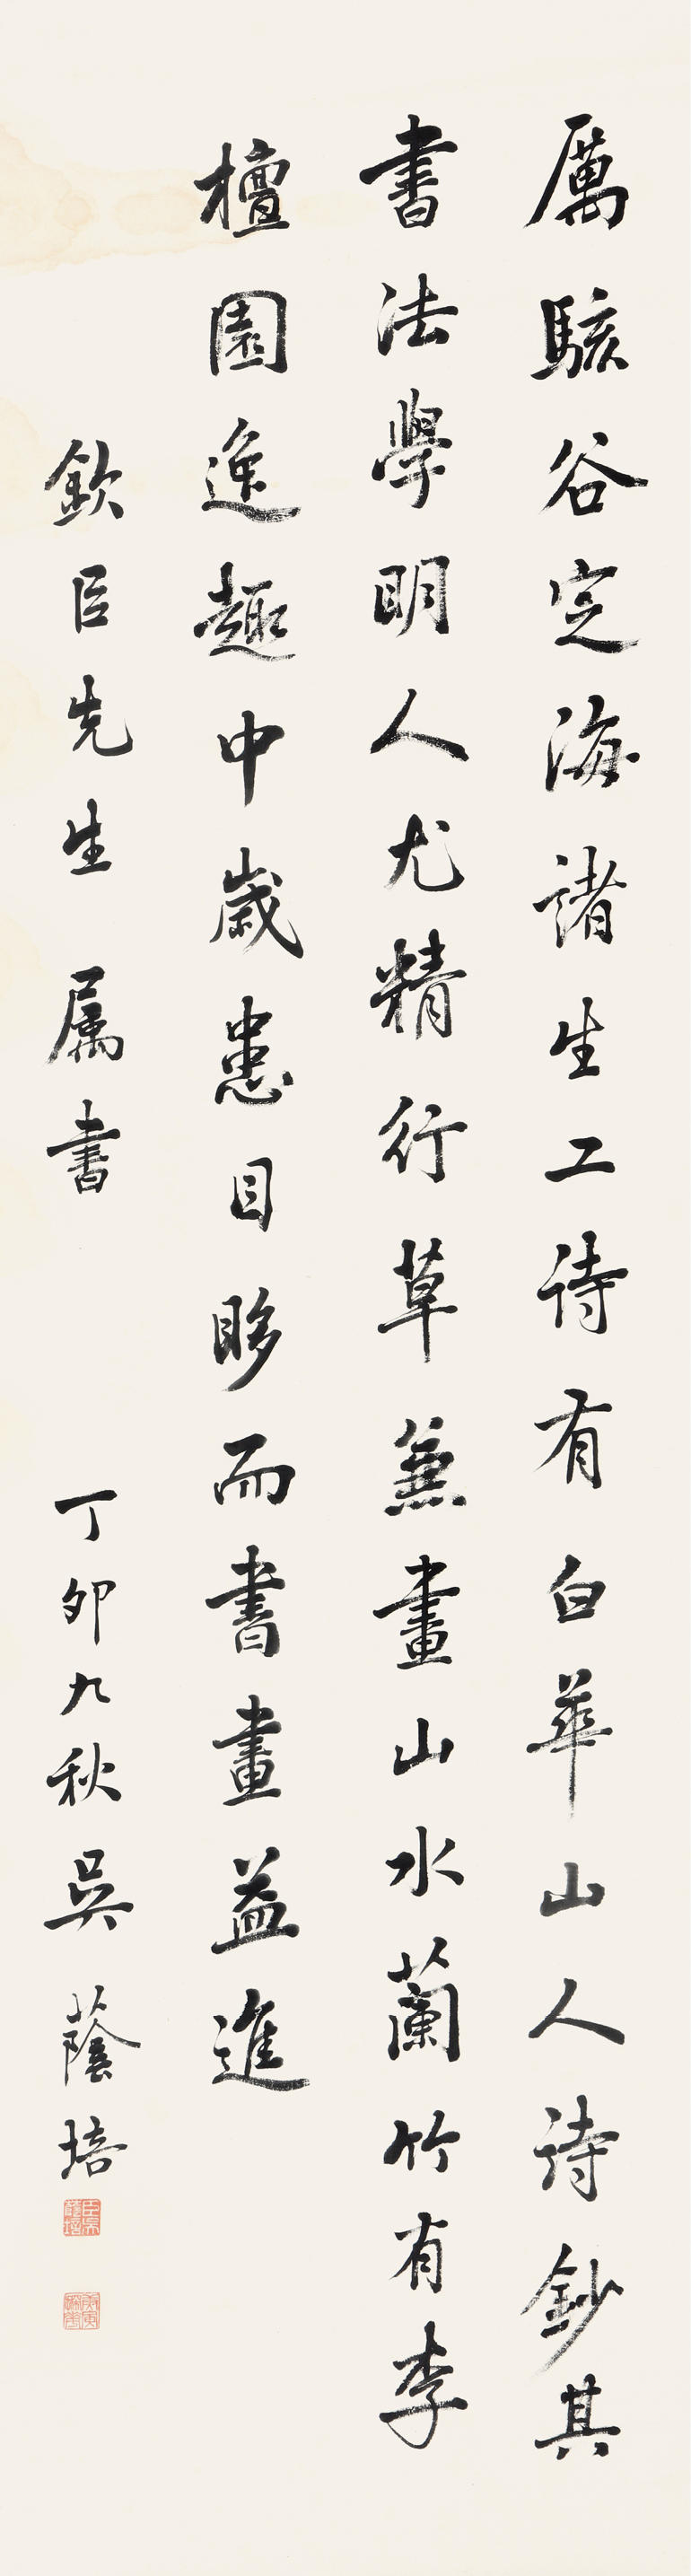 厲駭谷定海諸生工詩有白華山人詩鈔其
書法學明人尤精行草兼畫山水蘭竹有李
檀園逸趣中歲患目眵而書畫益進
欽臣先生 属書 丁卯九秋吳蔭培